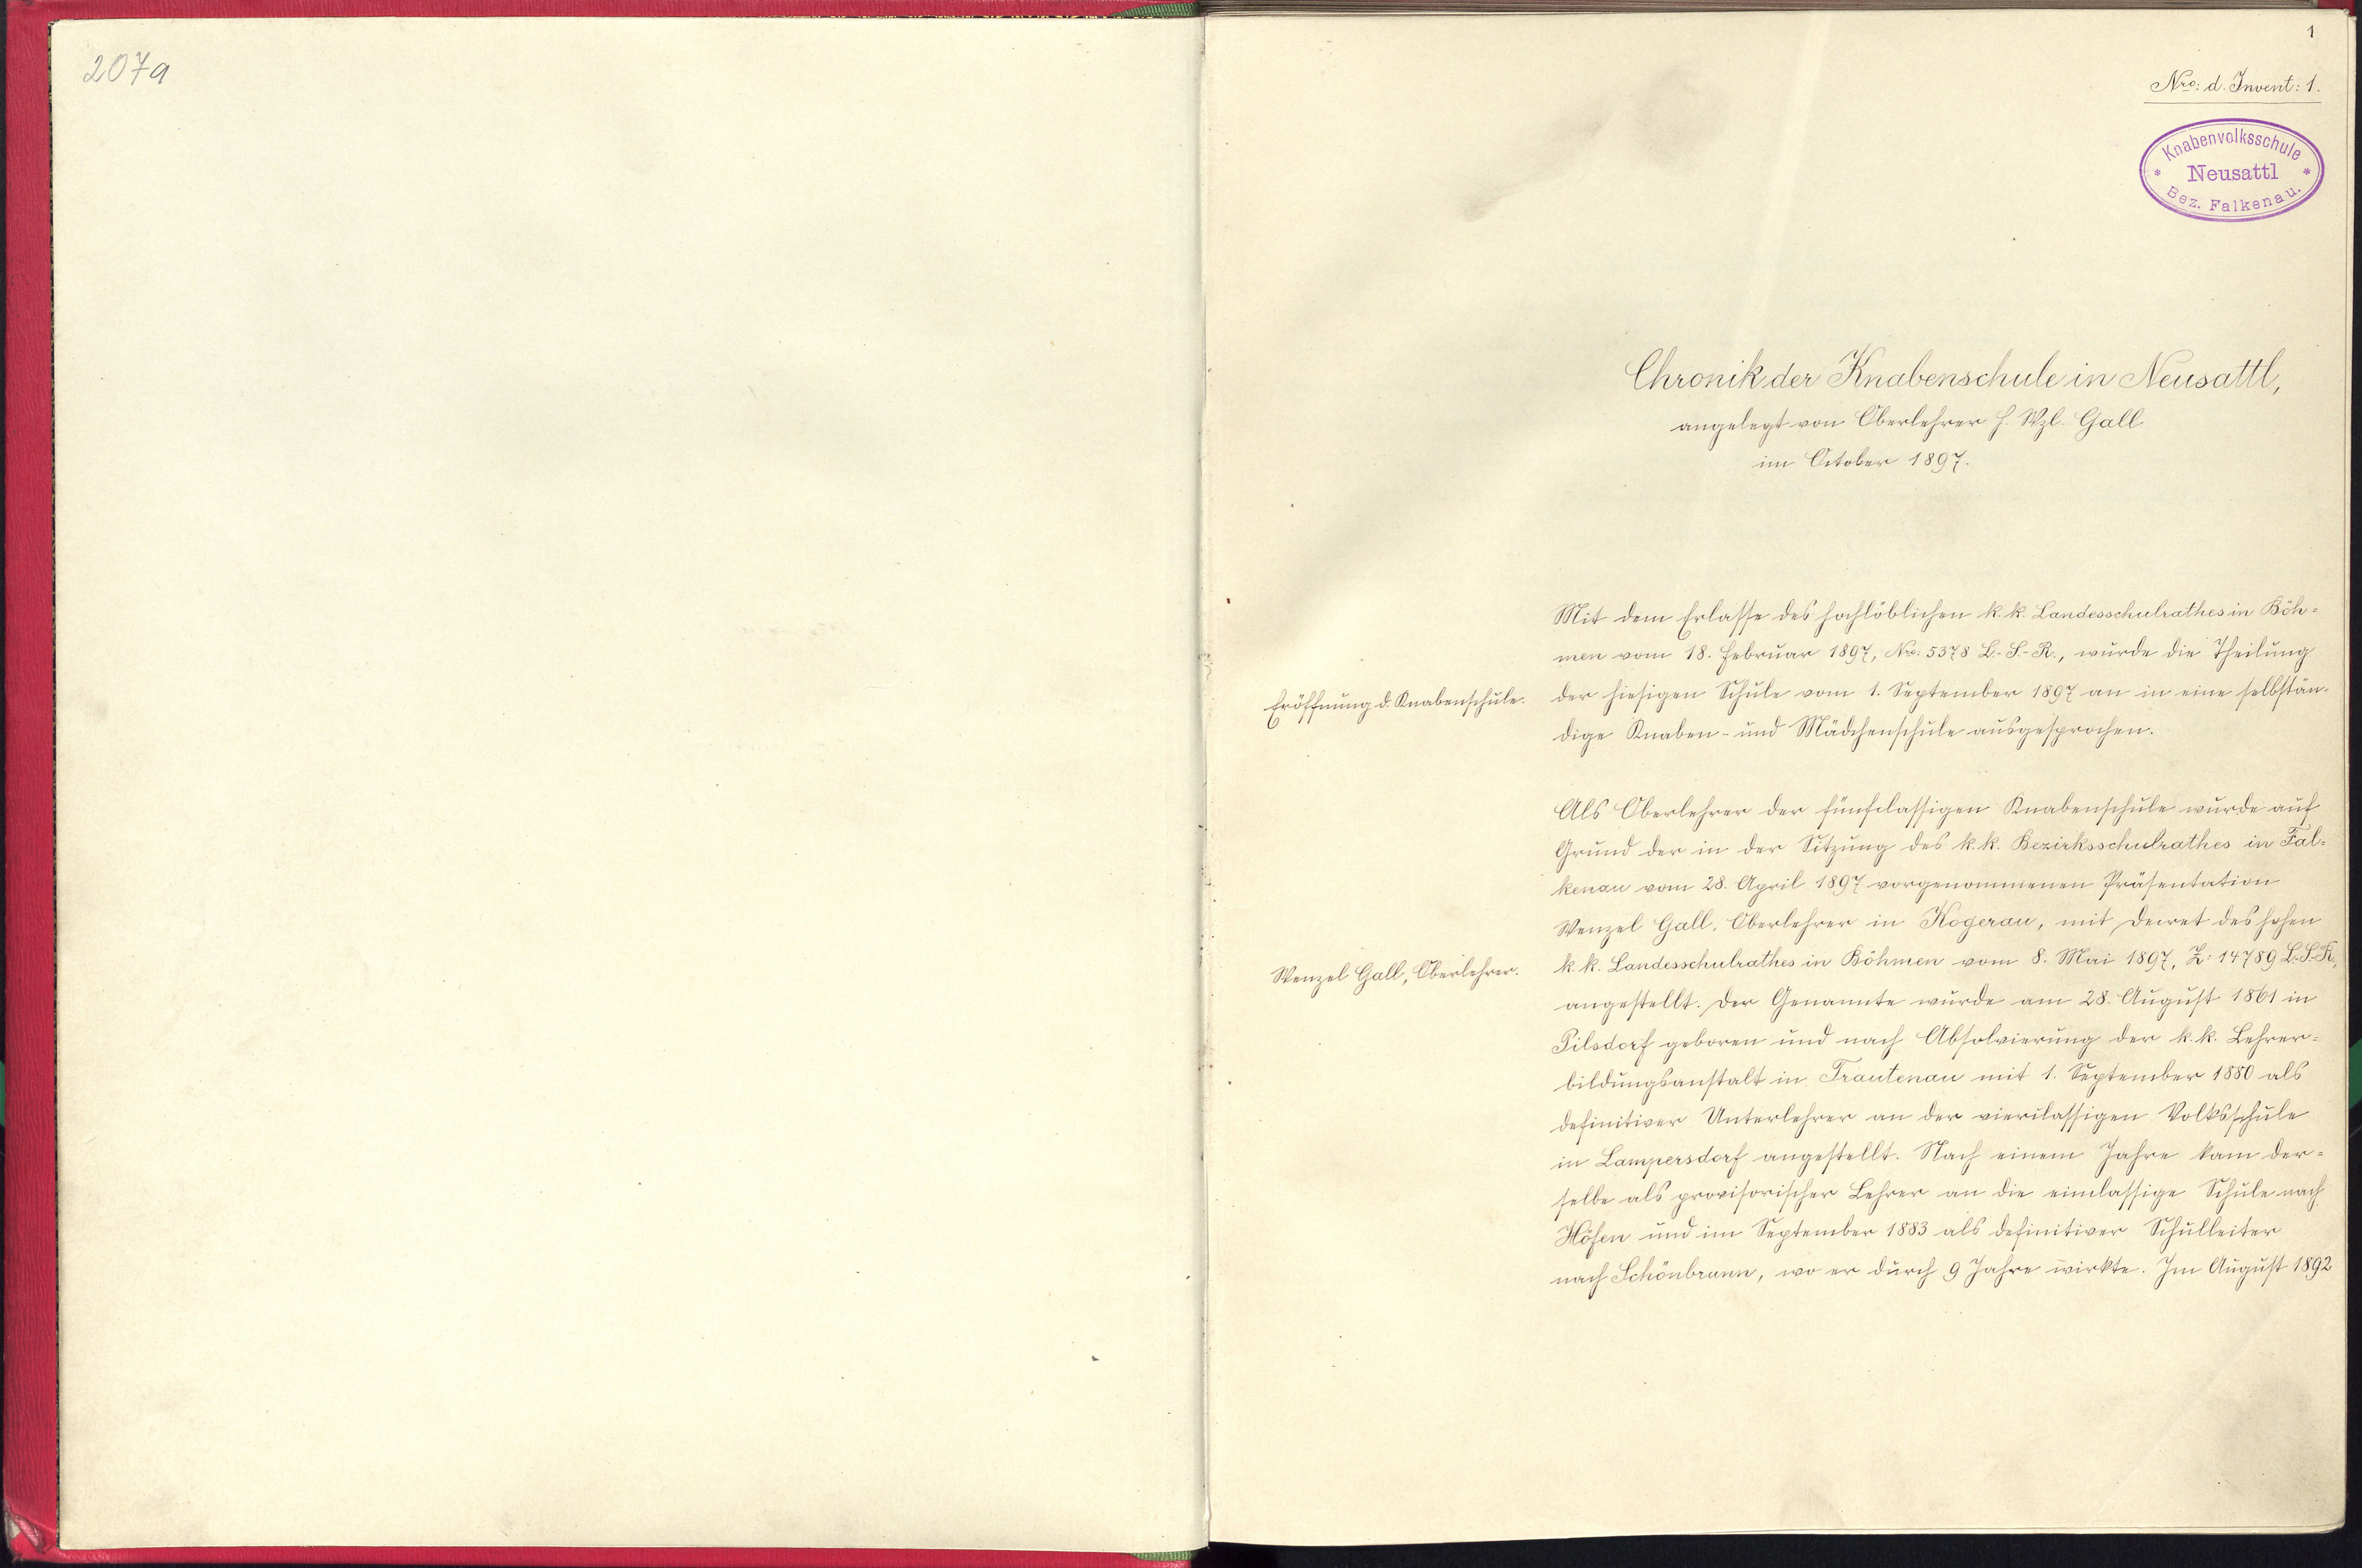 207a
1
Nro: d. Invent: 1.
Knabenvolksschule
* Neusattl *
Bez. Falkenau.
Chronik der Knabenschule in Neusattl,
angelegt von Oberlehrer H. Wzl. Gall
im October 1897.
Mit dem Erlasse des hochlöblichen k. k. Landesschulrathes in Böh=
men vom 18. Februar 1897, Nro: 5378 L.-S.-R., wurde die Theilung
Eröffnung d. Knabenschule.
der hiesigen Schule vom 1. September 1897 an in eine selbstän-
dige Knaben- und Mädchenschule ausgesprochen.
Als Oberlehrer der fünfclassigen Knabenschule wurde auf
Grund der in der Sitzung des k. k. Bezirksschulrathes in Fal=
kenau vom 28. April 1897 vorgenommenen Präsentation
Wenzel Gall, Oberlehrer in Kogerau, mit Decret des hohen
Wenzel Gall, Oberlehrer.
k. k. Landesschulrathes in Böhmen vom 8. Mai 1897, Z: 14789 L.-S.-R.,
angestellt. Der Genannte wurde am 28. August 1861 in
Pilsdorf geboren und nach Absolvierung der k. k. Lehrer=
bildungsanstalt in Trautenau mit 1. September 1880 als
definitiver Unterlehrer an der vierclassigen Volksschule
in Lampersdorf angestellt. Nach einem Jahre kam der=
selbe als provisorischer Lehrer an die einclassige Schule nach
Höfen und im September 1883 als definitiver Schulleiter
nach Schönbrunn, wo er durch 9 Jahre wirkte. Im August 1892